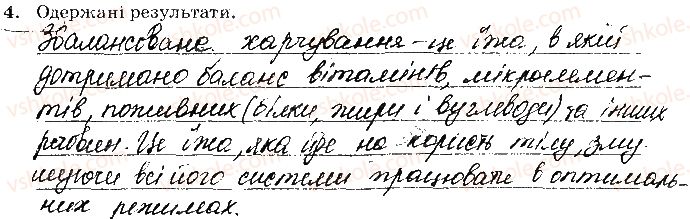 4. Одержані результати.
Збалансоване харчування – це їжа, в якій
дотримано баланс вітамінів, мікроелемен-
тів, поживних (білки, жири і вуглеводи) та інших
речовин. Це їжа, яка йде на користь тілу, зму
шуючи всі його системи працювати в оптималь-
них режимах.